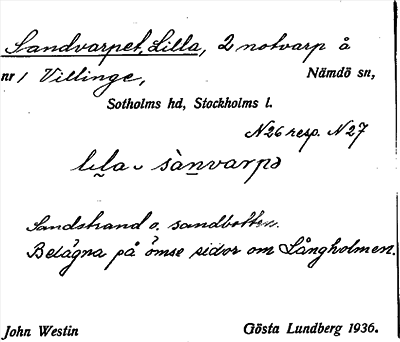 Sandvarpet, Lilla, 2 notvarp å
nr 1 Villinge, Nämdö sn,
Sotholms hd, Stockholms l.
N26 resp. N27
sànvarpə
Sandstrand o. sandbotten.
Belägna på ömse sidor om Långholmen.
John Westin Gösta Lundberg 1936.